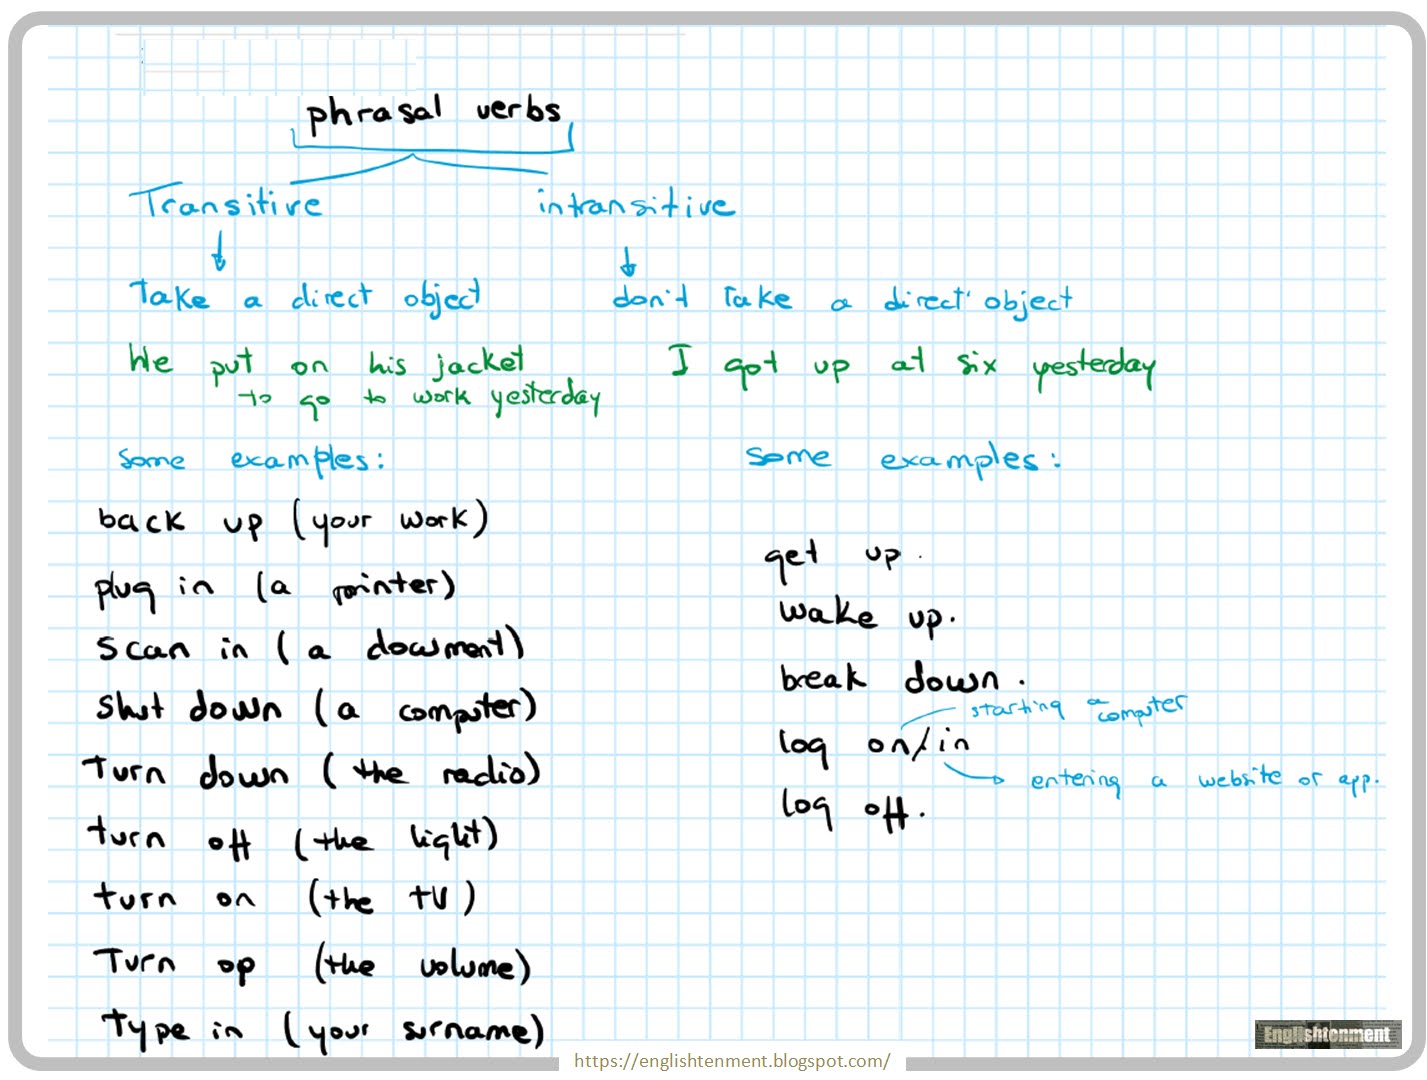 phrasal verbs
Transitive
intransitive
Take a direct object
don't Take a direct object
He put on his jacket
to go to work yesterday
I got up at six yesterday
some examples:
back up (your work)
plug in (a printer)
scan in (a document)
shut down (a computer)
turn down (the radio)
turn off (the light)
turn on (the TV)
Turn op (the volume)
Type in (your surname)
some examples:
get up.
wake up.
break down.
starting a computer
log on/in
entering a website or app.
log off.
Englishtenment
https://englishtenment.blogspot.com/